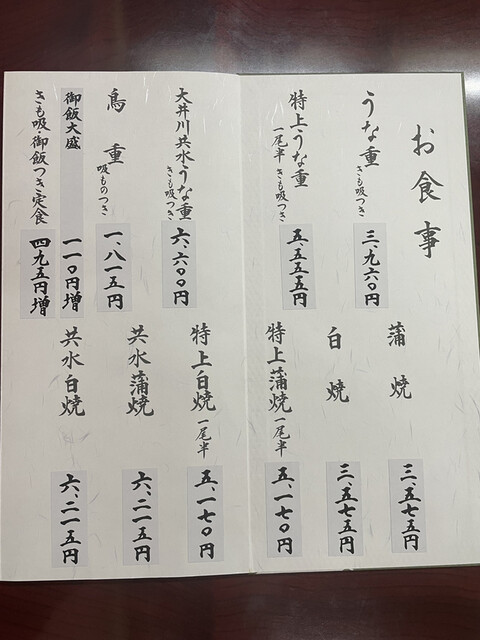 お食事
うな重 きも吸つき
三、九六〇円
特上うな重 一尾半 きも吸つき
五、五五五円
大井川共水うな重 きも吸つき
六、六〇〇円
鳥重 吸ものつき
一、八一五円
御飯大盛
一一〇円増
きも吸・御飯つき定食
四九五円増
蒲焼
三、五七五円
白焼
三、五七五円
特上蒲焼 一尾半
五、一七〇円
特上白焼 一尾半
五、一七〇円
共水蒲焼
六、二一五円
共水白焼
六、二一五円